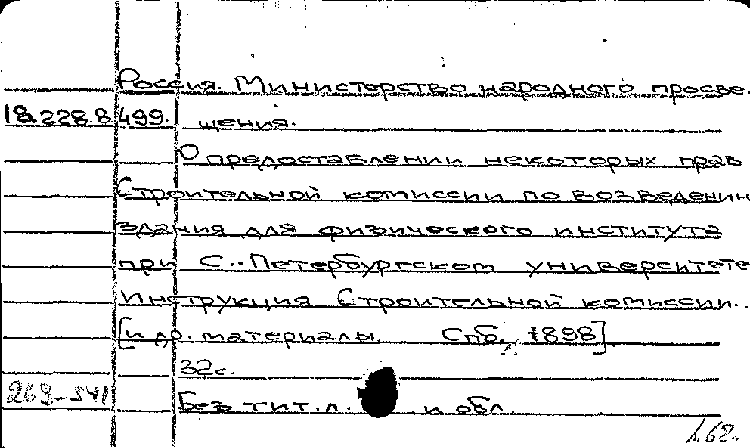 Россия. Министерство народного просве-
18.228.8.499. щения.
О предоставлении некоторых прав
Строительной комиссии по возведению
здания для физического института
при С.-Петербургском университете
Инструкция Строительной комиссии..
[и др. материалы. Спб., 1898]
32с.
269-541
Без тит.л. и обл.